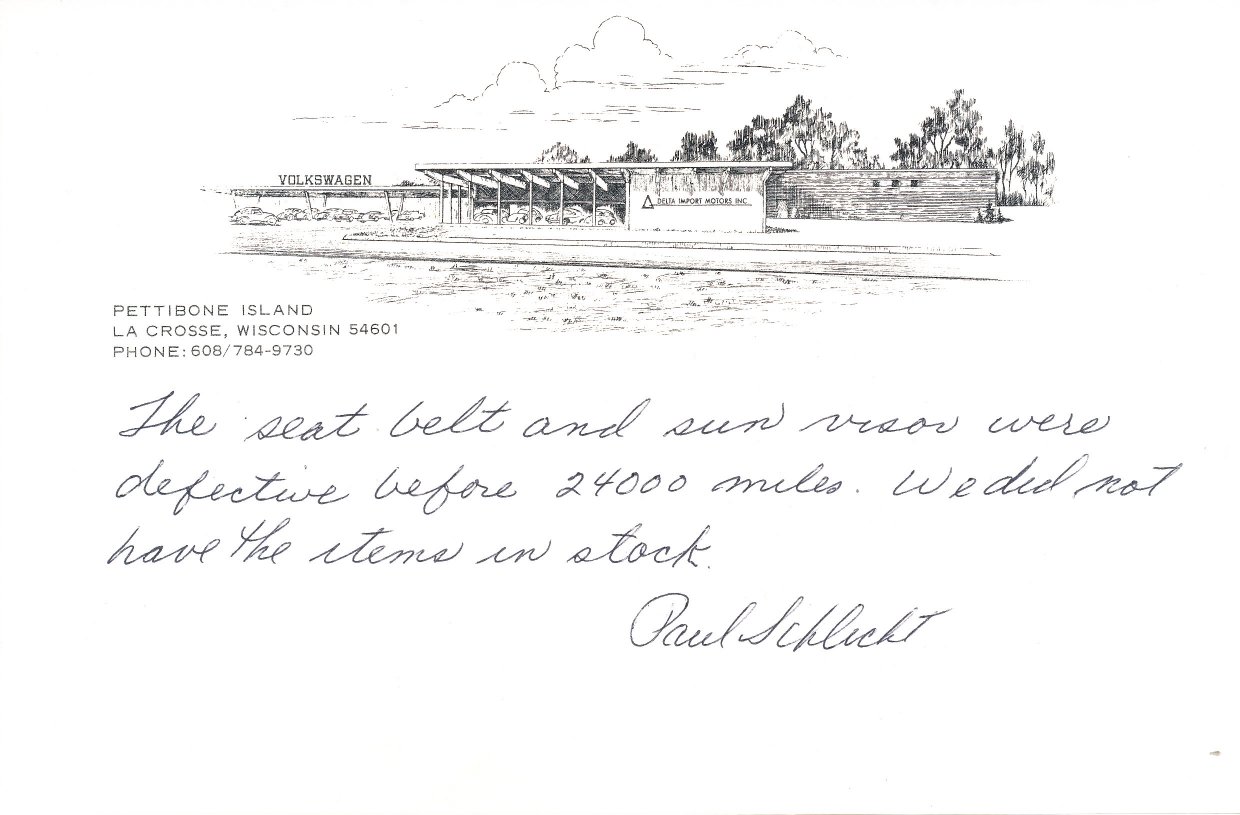 VOLKSWAGEN
DELTA IMPORT MOTORS INC
PETTIBONE ISLAND
LA CROSSE, WISCONSIN 54601
PHONE: 608/784-9730
The seat belt and sun visor were
defective before 24000 miles. We did not
have the items in stock.
Paul Schlecht